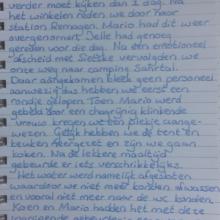 verder moet kijken dan 1 dag. Na
het winkelen reden we door naar
station Remagen. Mario had dit weer
overgenomen. Jelle had genoeg
gereden voor die dag. Na een emotioneel
afscheid met Sietske vervolgden we
onze weg naar camping Sahrtal.
Daar aangekomen bleek geen personeel
aanwezig dus hebben we eerst een
rondje gelopen. Toen Mario werd
gebeld door een chagrijnig klinkende
vrouw kregen we een plekje aange-
wezen. Gelijk hebben we de tent en
keuken neergezet en zijn we gaan
koken. Na de lekkere maaltijd
gebeurde er iets verschrikkelijks.
Het water werd namelijk afgesloten
waardoor we niet meer konden afwassen
en vooral niet meer naar de wc konden.
Koen en Mario hadden het met deze